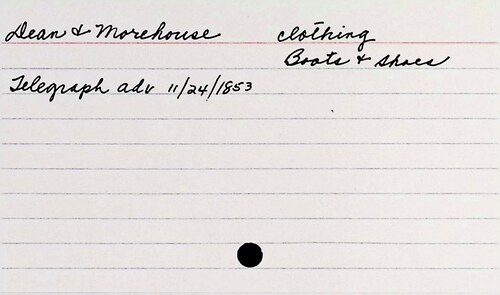 Dean & Morehouse clothing
Boots & Shoes
Telegraph adv 11/24/1853